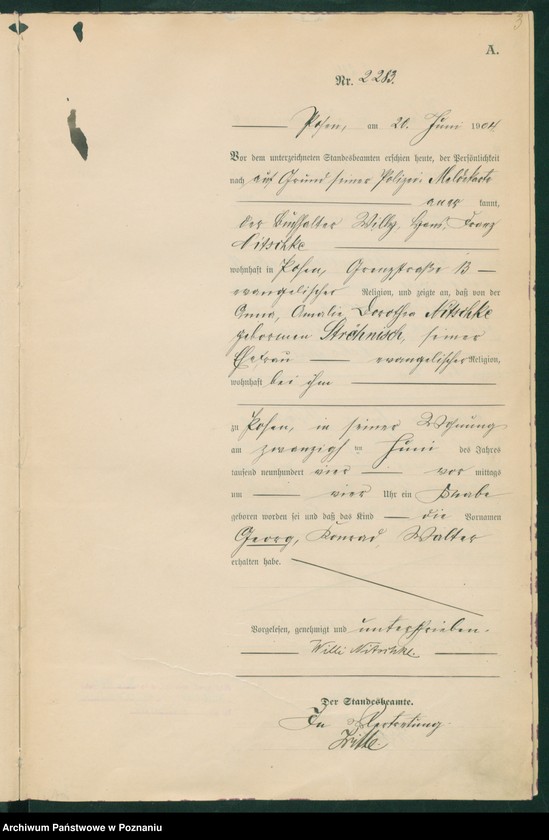 3
A.
Nr. 2283.
Posen, am 20. Juni 1904
Vor dem unterzeichneten Standesbeamten erschien heute, der Persönlichkeit
nach auf Grund seiner Polizei Meldekarte
aner kannt,
der Buchhalter Willy, Franz
Nitschke
wohnhaft in Posen, Grenzstraße 13
evangelischer Religion, und zeigte an, daß von der
Anna, Amalie Dorothea Nitschke
geborenen Strähnisch, seiner
Ehefrau evangelischer Religion,
wohnhaft bei ihm
zu Posen, in seiner Wohnung
am zwanzigsten Juni des Jahres
tausend neunhundert vier vor mittags
um vier Uhr ein Knabe
geboren worden sei und daß das Kind die Vornamen
Georg, Konrad, Walter
erhalten habe.
Vorgelesen, genehmigt und unterschrieben.
Willi Nitschke.
Der Standesbeamte.
In Vertretung
Archiwum Państwowe w Poznaniu